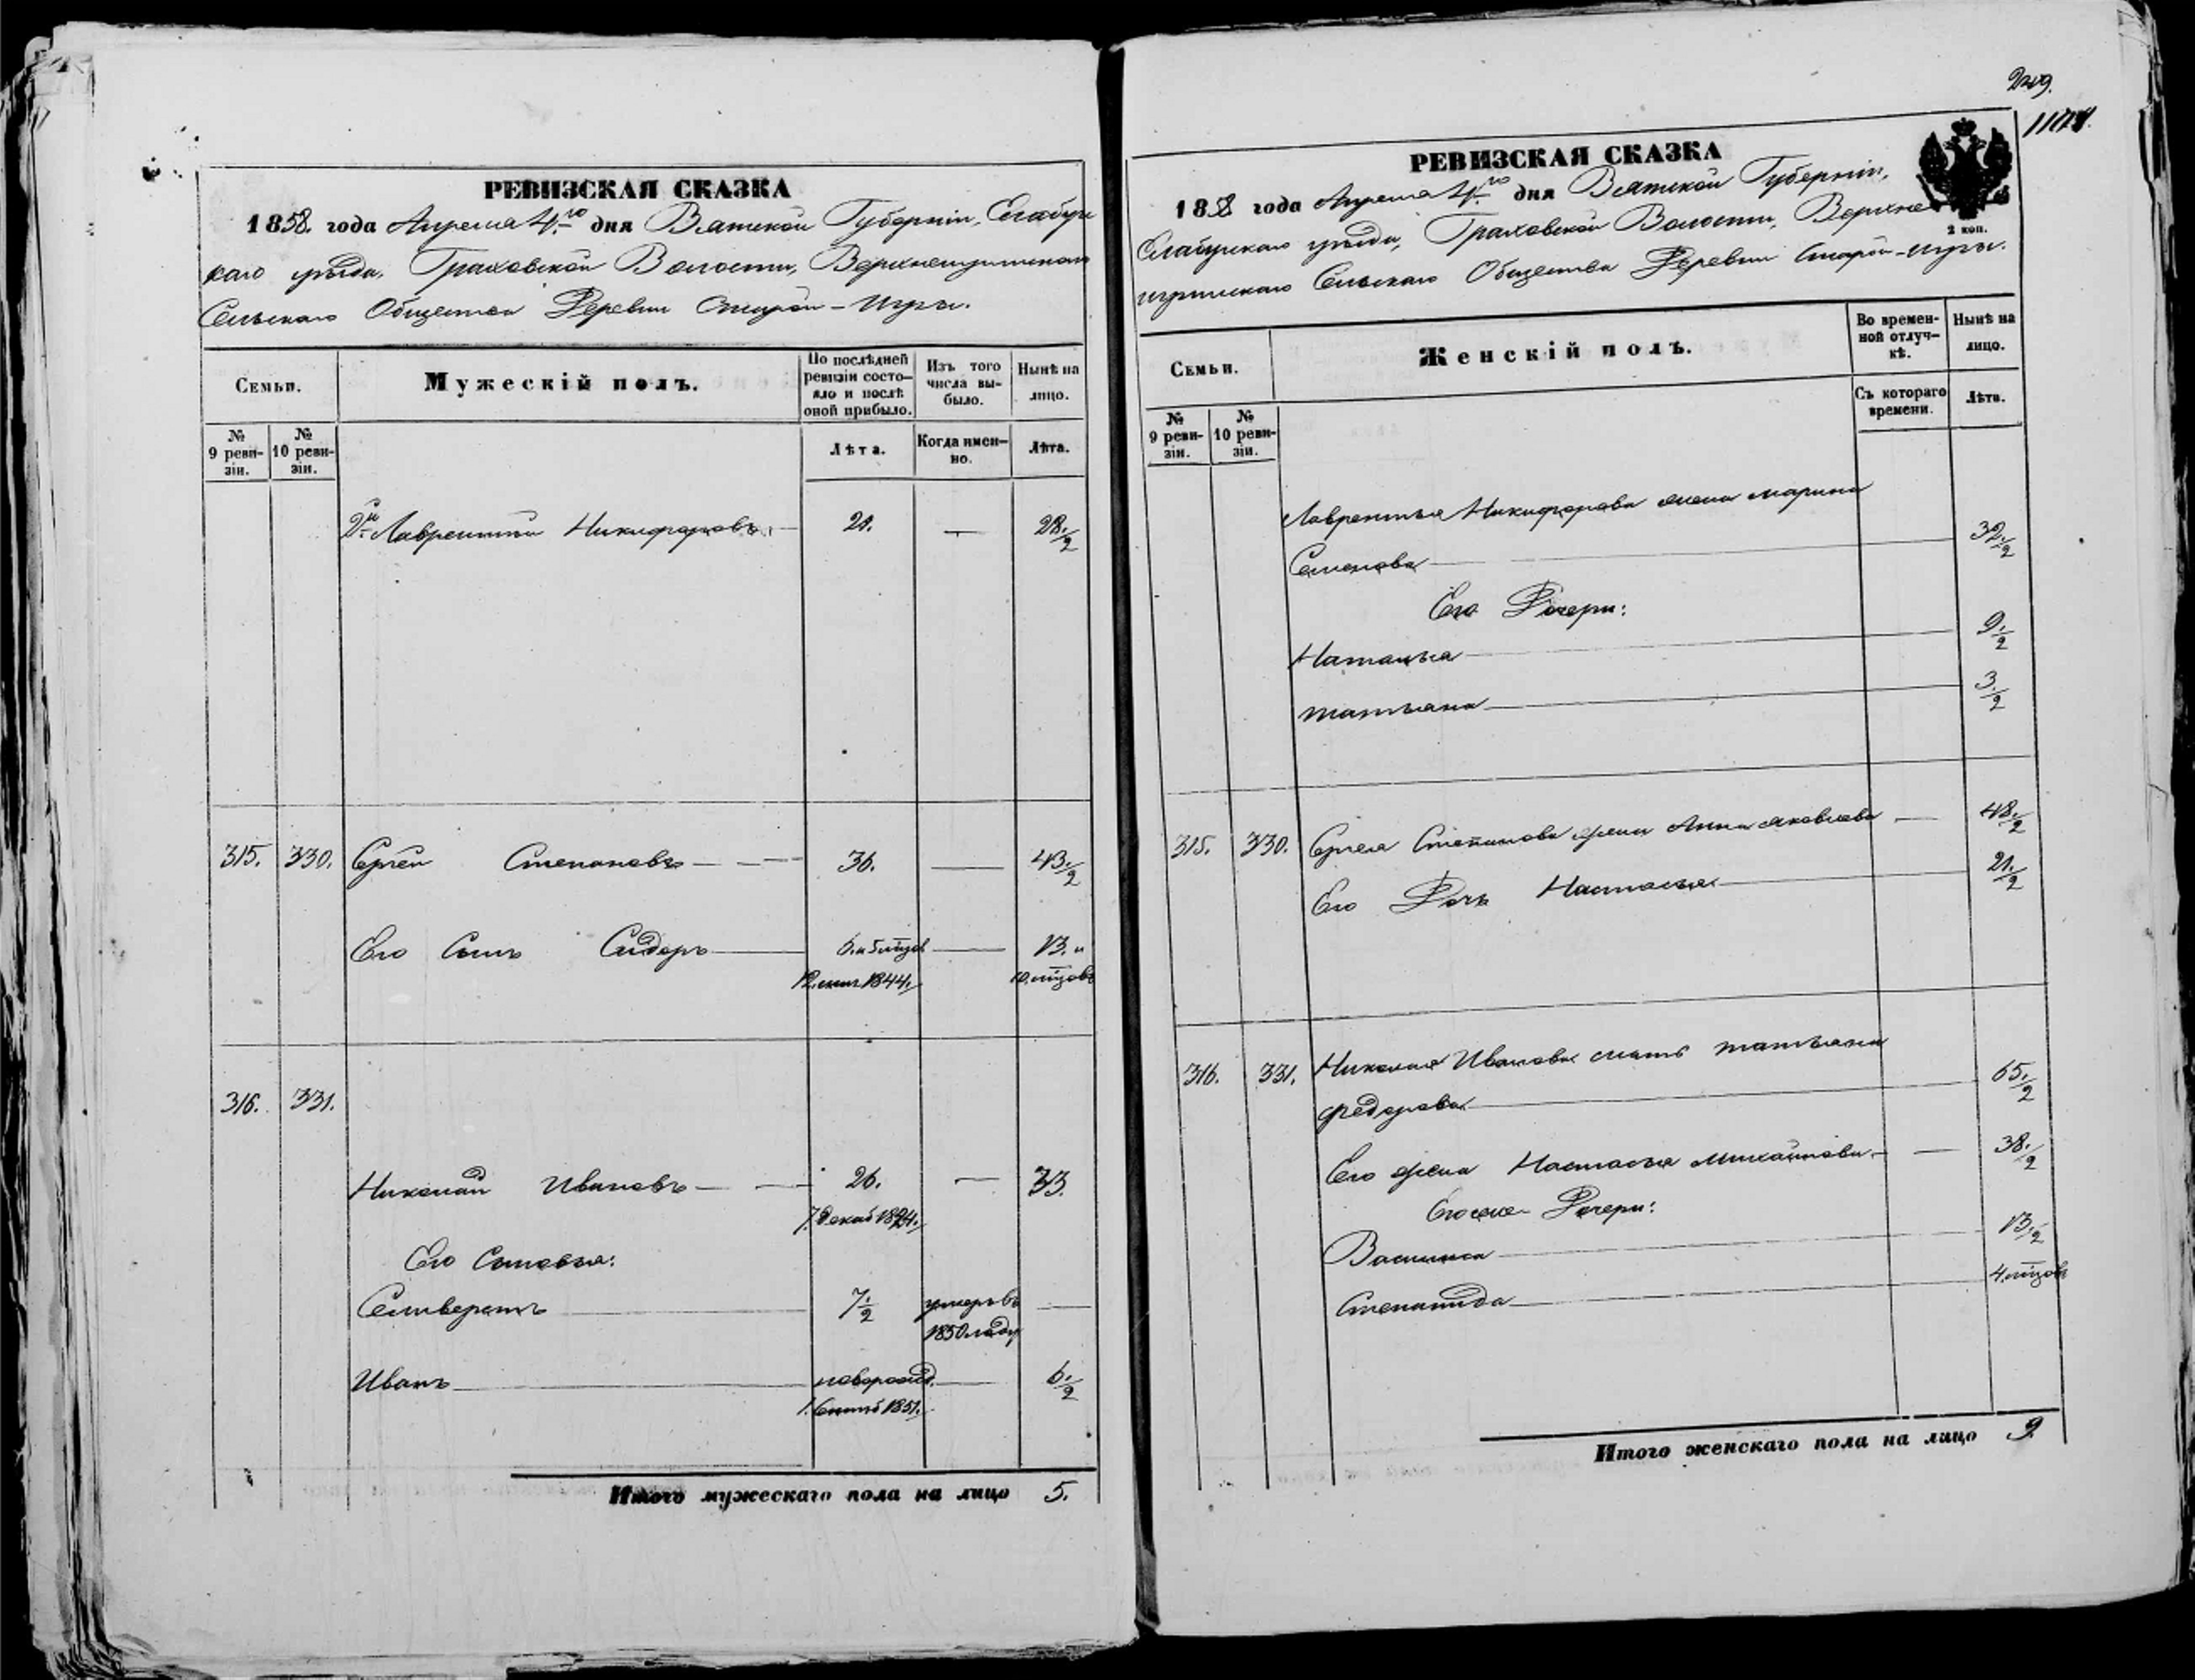 РЕВИЗСКАЯ СКАЗКА
1858. года Апреля 4.го дня Вятской Губерніи, Елабуж
каго уѣзда, Граховской Волости, Верхнеигринскаго
Сельскаго Общества Деревни Старой-Игры.
Семьи.
Мужескій полъ.
По послѣдней ревизіи состо-
яло и послѣ
оной прибыло.
Изъ того
числа вы-
было.
Нынѣ на
лицо.
№
9 реви-
зіи.
№
10 реви-
зіи.
Лѣта.
Когда имен-
но.
Лѣта.
2й Лаврентій Никифоровъ 21. — 28.½
315. 330. Сергѣй Степановъ 36. — 43.½
Его Сынъ Сидоръ 6. и 5 мѣцов — 13. и
1844. 10. мѣцовъ
316. 331.
Николай Ивановъ 26. — 33.
7. декаб
Его Сыновья:
Селиверстъ 7.½ умеръ въ —
1850 году
Иванъ новорожд. — 6.½
1. Сентяб 1851.
Итого мужескаго пола на лицо 5.
РЕВИЗСКАЯ СКАЗКА
1858 года Апреля 4.го дня Вятской Губерніи,
Елабужскаго уѣзда, Граховской Волости, Верхне
игринскаго Сельскаго Общества Деревни Старой-Игры.
2 коп.
Семьи.
Женскій полъ.
Во времен-
ной отлуч-
кѣ.
Нынѣ на
лицо.
№
9 реви-
зіи.
№
10 реви-
зіи.
Съ котораго
времени.
Лѣта.
Лаврентья Никифорова жена Марина
Семенова 32.½
Его Дочери:
Наталья 9.½
Татьяна 3.½
315. 330. Сергея Степанова жена Анна Яковлева — 48.½
Его Дочь Настасья 21.½
316. 331. Николая Иванова мать Татьяна
Федорова 65.½
Его жена Настасья Михайлова — 38.½
Его же Дочери:
Василиса 13.½
Степанида 4. мѣцовъ
Итого женскаго пола на лицо 9.